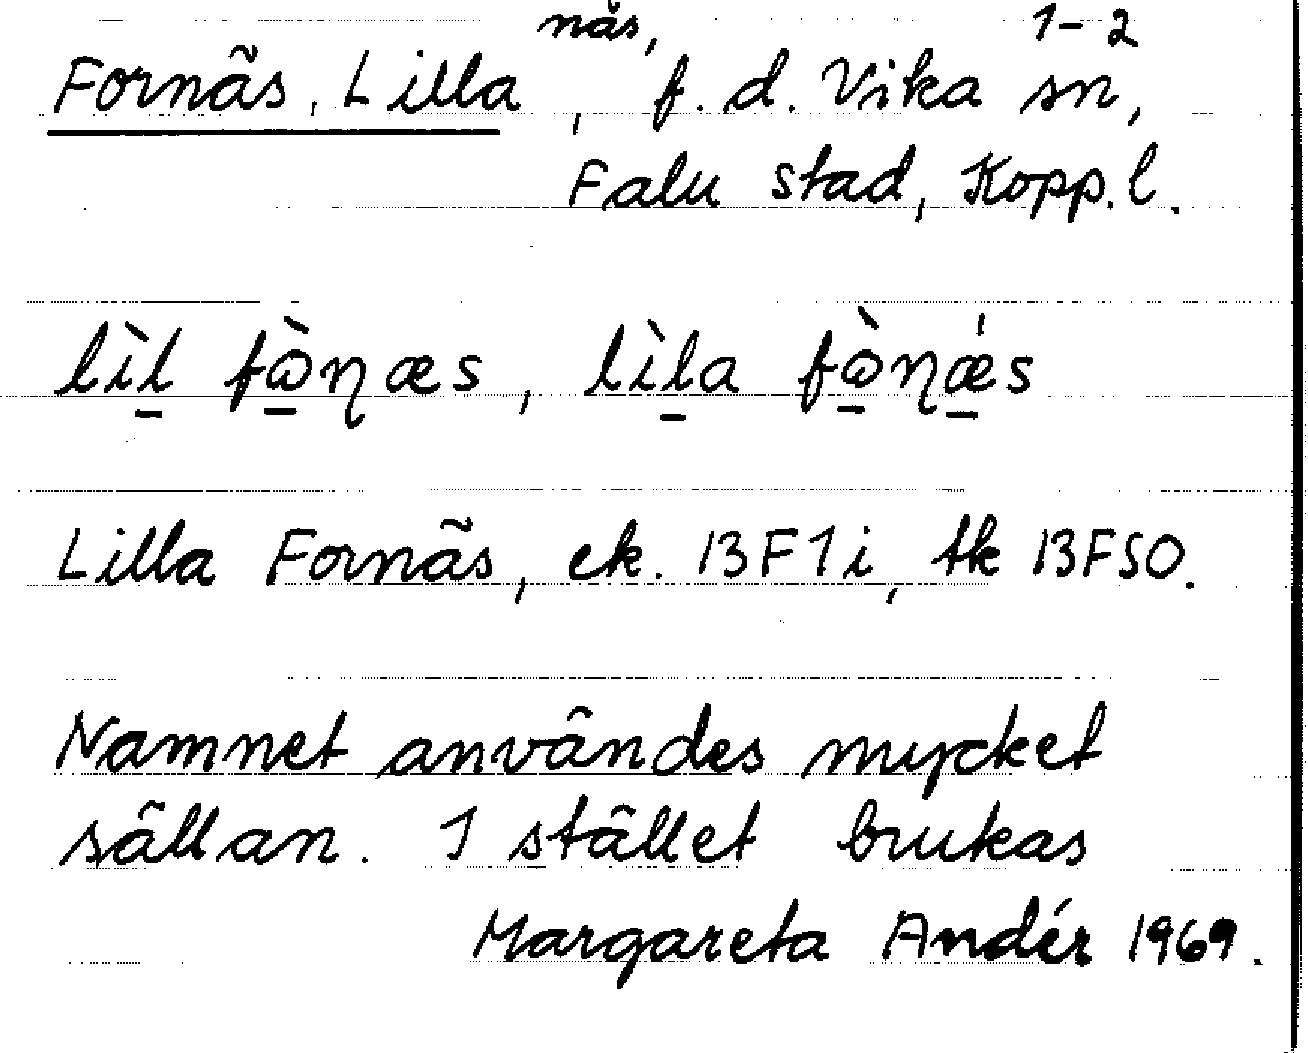 näs, 1-2
Fornäs, Lilla, f. d. Vika sn,
Falu stad, Kopp. l.
lìl fòɳæs, lìla fòɳǽs
Lilla Fornäs, ek. 13F1i, tk 13F50.
Namnet användes mycket
sällan. I stället brukas
Margareta Andér 1969.